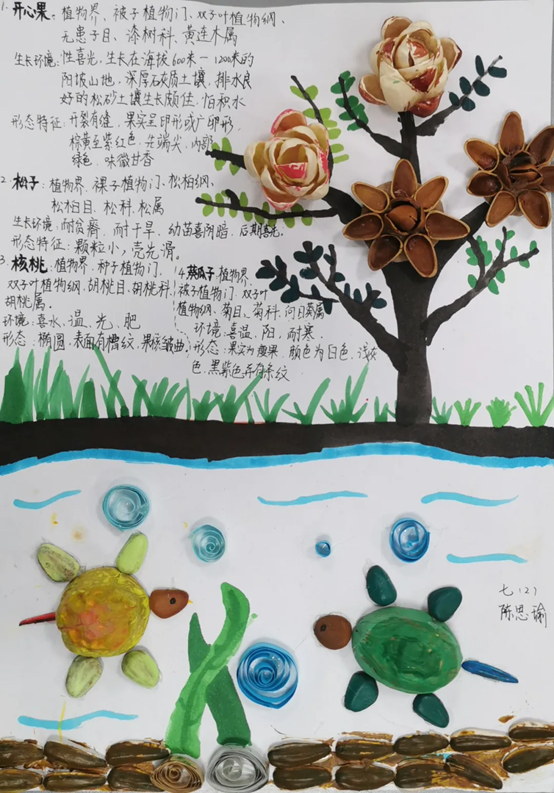 1. 开心果：植物界、被子植物门、双子叶植物纲、
无患子目、漆树科、黄连木属
生长环境：性喜光，生长在海拔600米—1200米的
阳坡山地，深厚石灰质土壤，排水良
好的松砂土壤生长颇佳，怕积水
形态特征：开裂有缝，果实呈卵形或广卵形，
棕黄至紫红色，在端尖，内部
绿色，味微甘香
2. 松子：植物界、裸子植物门、松柏纲、
松柏目、松科、松属
生长环境：耐贫瘠，耐干旱，幼苗喜阴暗，后期喜光。
形态特征：颗粒小，壳光滑。
3. 核桃：植物界、种子植物门、
双子叶植物纲、胡桃目、胡桃科、
胡桃属。
环境：喜水、温、光、肥
形态：椭圆，表面有槽纹，果球皱曲。
4. 葵瓜子：植物界、
被子植物门、双子叶
植物纲、菊目、菊科、向日葵属
环境：喜温，阳，耐寒。
形态：果实为瘦果，颜色为白色，浅灰
色，黑紫色并有条纹
七（2）
陈思瑜